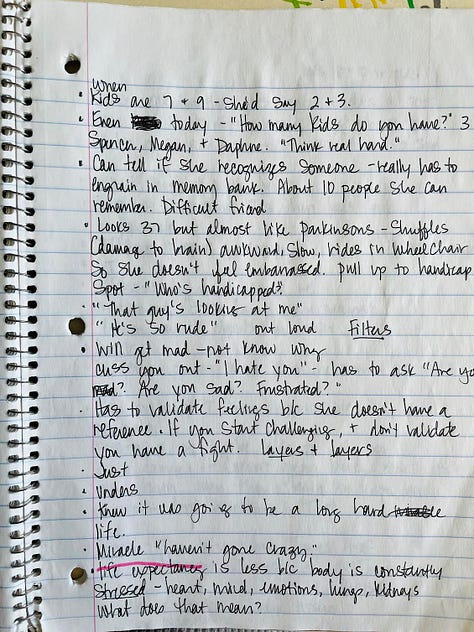 when
• Kids are 7 + 9 - she'd say 2 + 3.
• Even today - "How many kids do you have?" 3
Spencer, Megan, + Daphne. "Think real hard."
• Can tell if she recognizes someone - really has to
engrain in memory bank. About 10 people she can
remember. Difficult friend
• Looks 37 but almost like Parkinsons - Shuffles
(damage to brain) awkward, slow, rides in wheelchair
So she doesn't feel embarrassed. pull up to handicap
Spot - "Who's handicapped?
• "That guy's looking at me"
"He's so rude" out loud Filters
• Will get mad - not know why
cuss you out - "I hate you" - has to ask "Are yo
mad? Are you sad? Frustrated?"
• Has to validate feelings b/c she doesn't have a
reference. If you start challenging, + don't validate
you have a fight. Layers + layers
• Just
• Unders
• Knew it was going to be a long hard
life.
• Miracle "haven't gone crazy."
• life expectancy is less b/c body is constantly
stressed - heart, mind, emotions, lungs, kidneys
What does that mean?